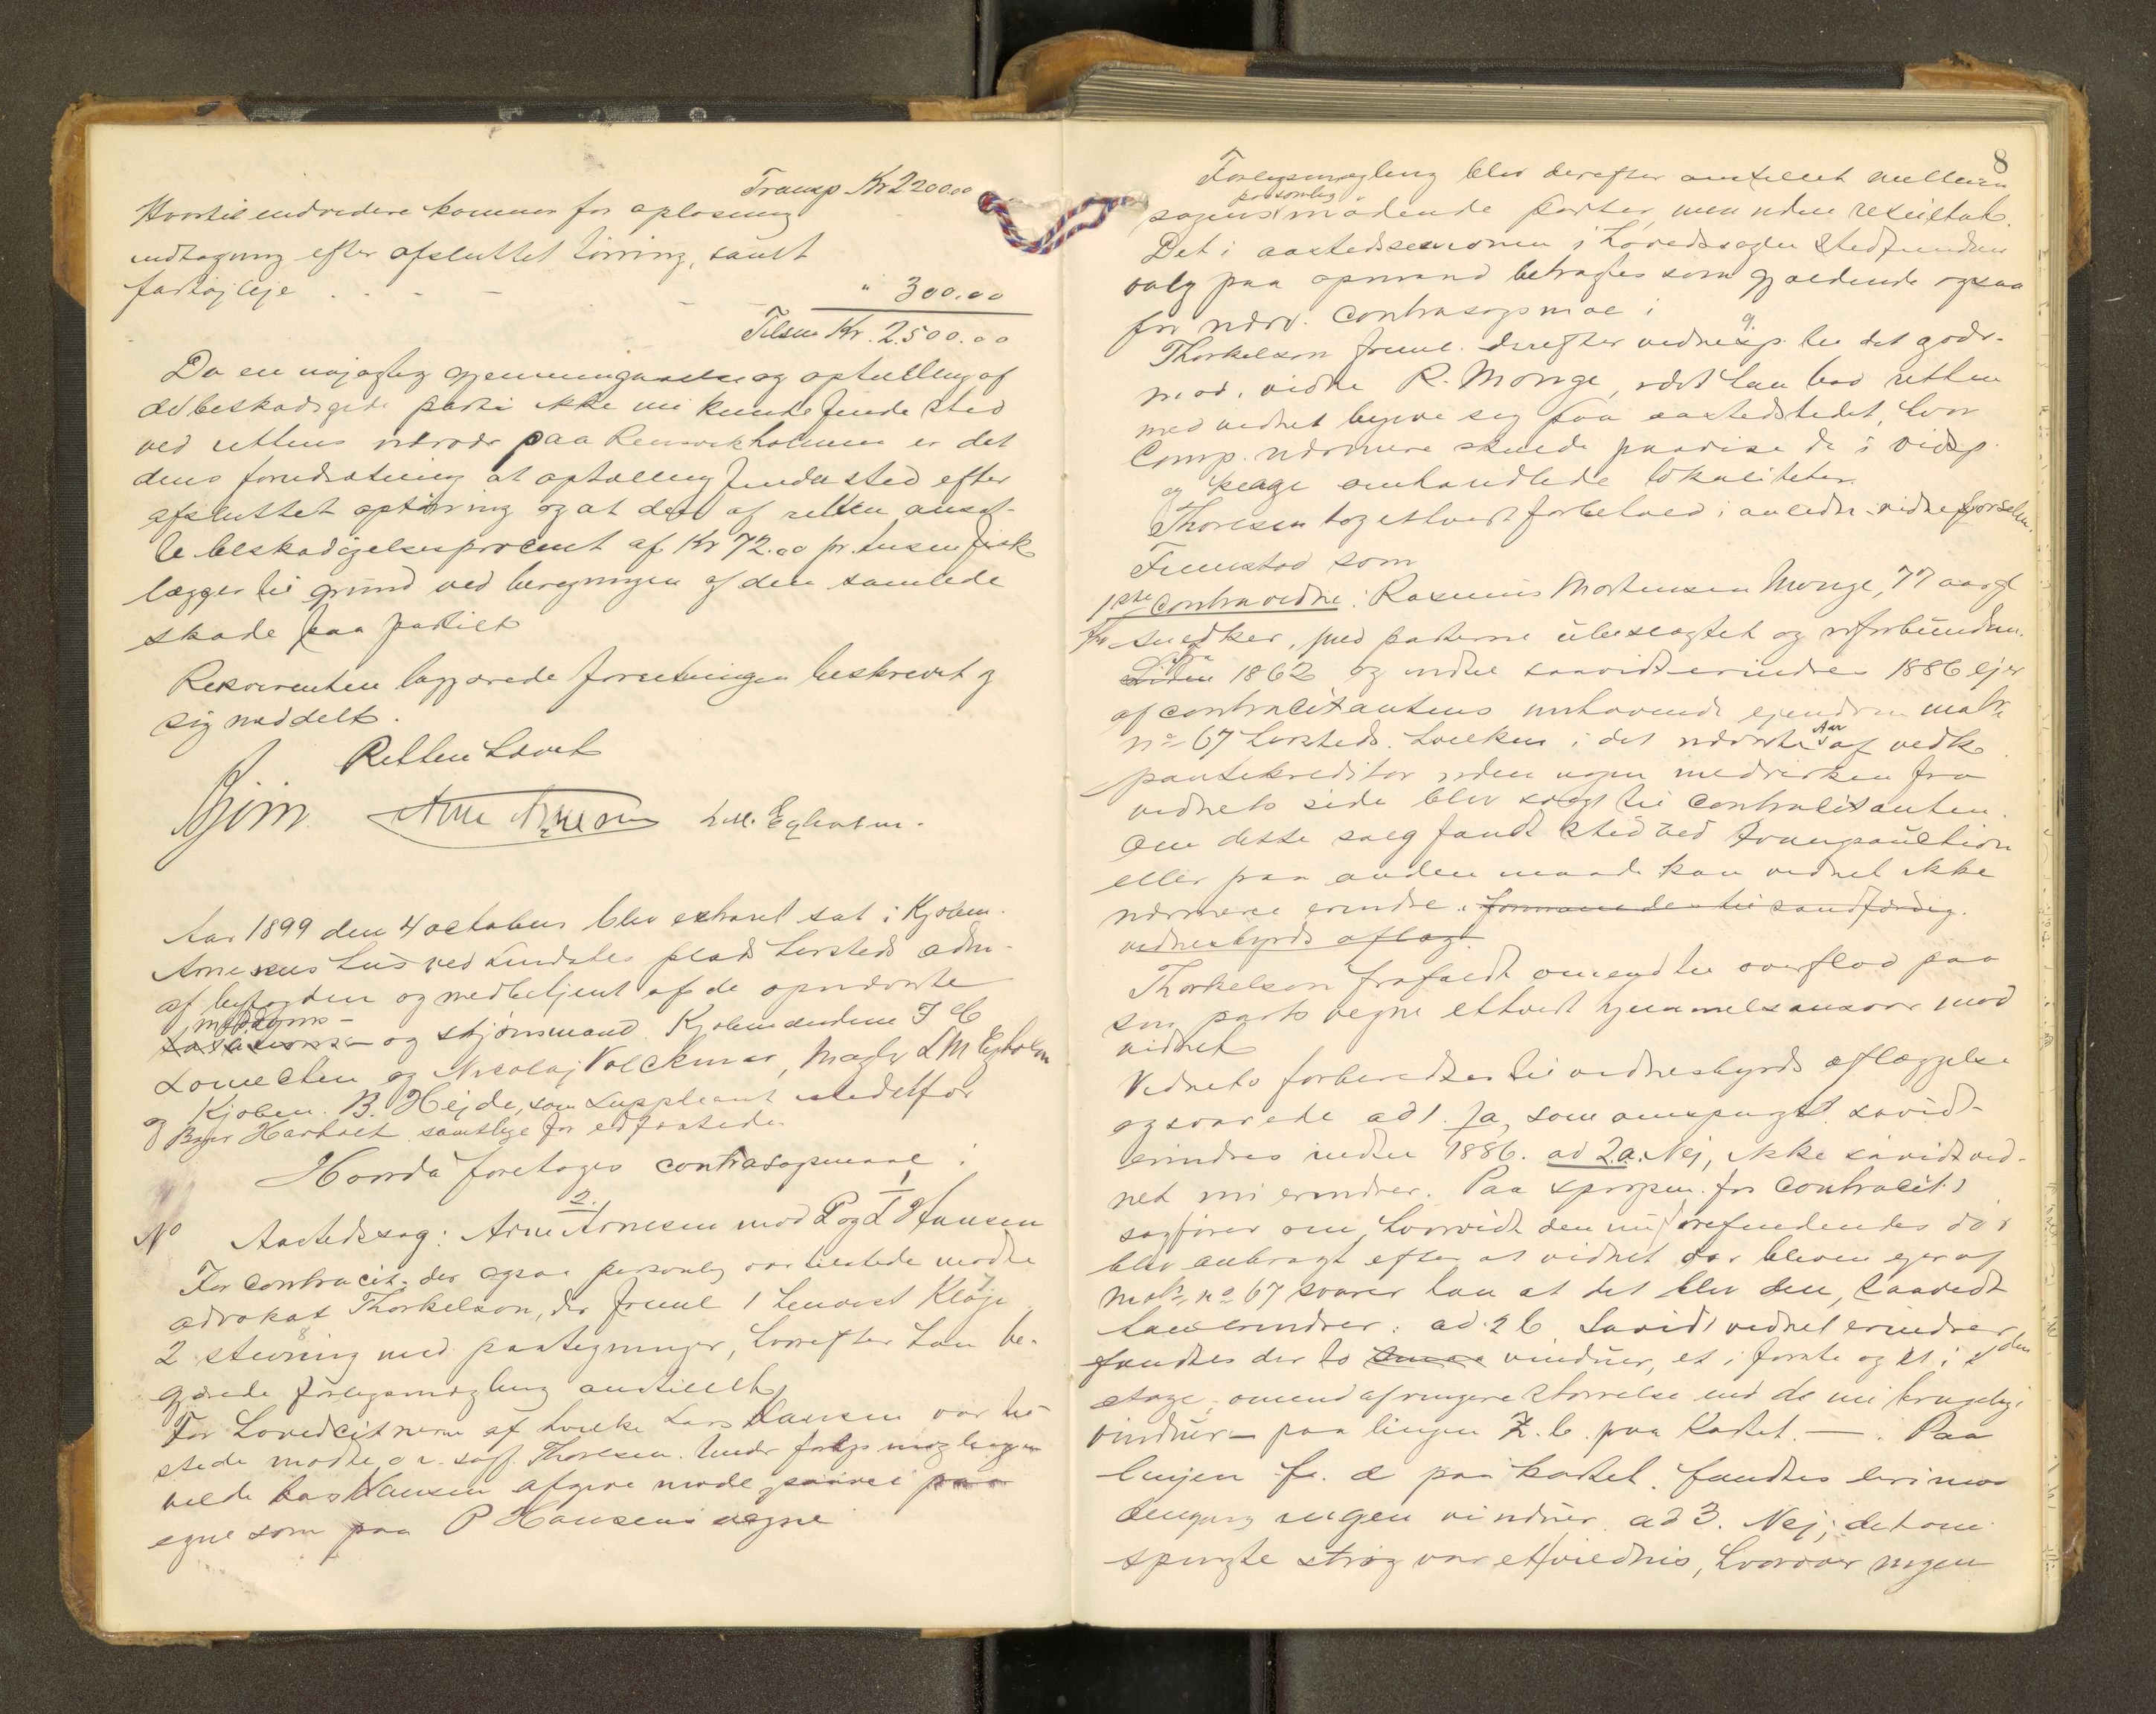 Transp Kr 2200.00
Hvortil endvidere kommer for oplosning
indtagning efter afsluttet törring, samt
fartøjleje . . - - - - " 300.00
Tilsm Kr. 2.500.00
Da en nøjagtig gjennemgaaelse og optælling af
det beskadigede parti ikke nu kunde finde sted
ved rettens nærvær paa er det
dens forudsætning at optælling finder sted efter
afsluttet optörring og at den af retten ansat-
te beskadigelsesprocent af Kr 72.00 pr. tusen fisk
lægges til grund ved beregningen af den samlede
skade paa partiet
Rekvirenten begjærede forretningen beskrevet og
sig meddelt.
Retten hævet
Arne Arnesen L.M. Egholm.
Aar 1899 den 4 october blev extraret sat i Kjøbm.
Arnesens hus ved plads hersteds adm.
af byfogden og medbetjent af de opnævnte
meddoms-
og skjønsmænd Kjøbmændene J C
og Nicolaj Volckmar, L M Egholm
og Kjøbm. B. Hejde, som suppleant istedetfor
samtlige før edfæstede.
Hvorda foretoges contrasøgsmaal i
2. 1
No Aastedssag: Arne Arnesen mod P og L Hansen
For contracit. der ogsaa personlig var tilstede mødte
7
advokat Thorkelson, der freml 1 henvist Klage,
8
2 stevning med paategninger, hvorefter han be-
gjærede forligsmægling anstillet.
For hovedcitnerne af hvilke Lars Hansen var til-
stede mødte o.r. sagf. Thoresen. Under forligsmæglingen
vilde Lars Hansen afgive møde saavel paa
egne som paa P Hansens vegne
8
Forligsmægling blev derefter anstillet mellem
personlig
sagens mødende parter, men uden resultat.
Det i aastedssessionen i hovedsagen stedfundne
valg paa opmand betragtes som gjældende ogsaa
for nærv. contrasøgsmaal i
9.
Thorkelson freml. derefter vidnesp. til det godv.
mød. vidne R. Monge, idet han bad retten
med vidnet begive sig paa aastedstedet, hvor
Comp. nærmere skulde paavise de i vidsp.
og klage omhandlede lokaliteter.
Thoresen tog ethvert forbehold i anledn. vidneførselen.
Fremstod som
1ste contravidne: Rasmus Mortensen Monge, 77 aar gl
fv snedker, med parterne ubeslægtet og uforbunden.
fra
Siden 1862 og indtil saavidt erindres 1886 ejer
af contracitantens nuhavende ejendom matr.
Aar
no 67 hersteds. hvilken i det nævnte af vedk.
pantekreditor uden nogen medvirken fra
vidnets side blev solgt til contracitanten.
Om dette salg fandt sted ved tvangsauction
eller paa anden maade kan vidnet ikke
nærmere erindre. formanedes til sandfærdig.
vidnesbyrds aflæg.
Thorkelson frafaldt omend til overflod paa
sin parts vegne ethvert hjemmelsansvar mod
vidnet
Vidnet forberedtes til vidnesbyrds aflæggelse
og svarede ad 1. Ja, som omspurgt savidt
erindres indtil 1886. ad 2.a. Nej, ikke savidt vid-
net nu erindrer. Paa spørgsm. fra contracit.s
sagfører om, hvorvidt den nu forefindendes dør
blev anbragt efter at vidnet var bleven ejer af
Matr. no 67 svarer han at det blev den, saavidt
han erindrer: ad 2 b. Savidt vidnet erindrer
fandtes der to vinduer, et i første og et i den
etage, omend af ringere størrelse end de nu brugelige
vinduer - paa linjen Z. b. paa Kartet. — . Paa
linjen fr. d paa kartet. fandtes derimod
dengang ingen vinduer. ad 3. Nej; det om-
spurgte strøg var et vildnis, hvorover ingen